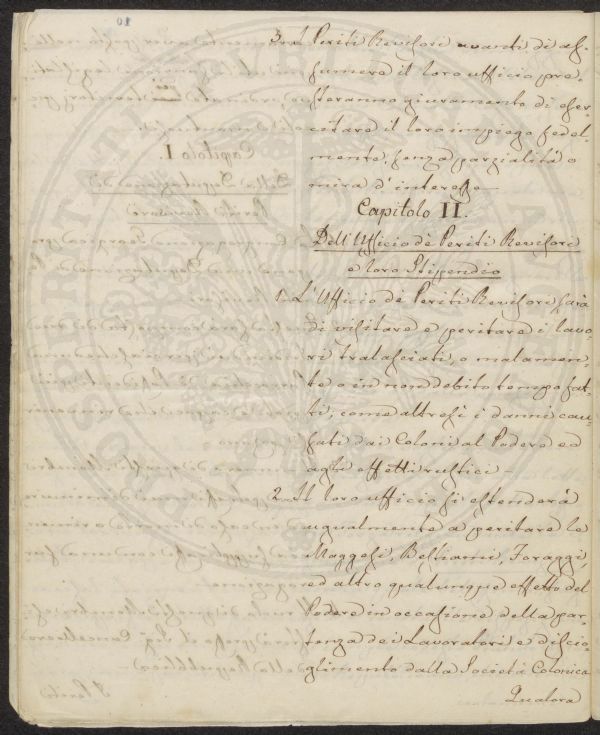 3. I Periti Revisori avanti di as-
sumere il loro ufficio pre-
steranno giuramento di eser-
citare il loro impiego fedel-
mente, senza parzialità o
mira d'interesse
Capitolo II.
Dell'Ufficio dè Periti Revisori
e loro Stipendio
1. L'Ufficio dè Periti Revisori sarà
di visitare e peritare i lavo-
ri tralasciati, o malamen-
te o in non debito tempo fat-
ti; come altresì i danni cau-
sati dai Coloni al Podere ed
agli effetti rustici -
2. Il loro ufficio si estenderà
ugualmente a peritare le
Maggesi, Bestiami, Foraggi,
ed altro qualunque effetto del
Podere in occasione della par-
tenza dei Lavoratori e discio-
glimento dalla Società Colonica
Qualora